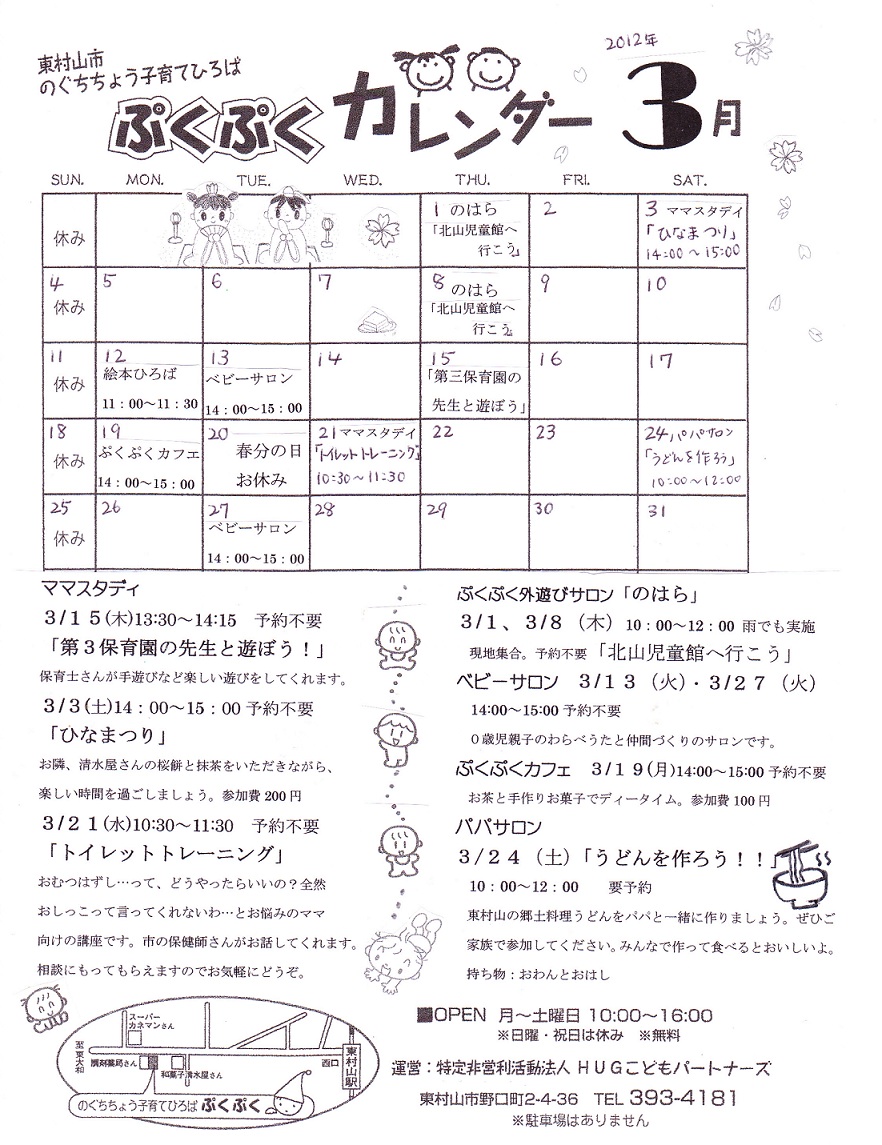 東村山市
のぐちちょう子育てひろば
2012年
ぷくぷく カレンダー 3月
SUN. MON. TUE. WED. THU. FRI. SAT.
休み
1 のはら
「北山児童館へ
行こう」
2
3 ママスタディ
「ひなまつり」
14:00〜15:00
4 休み
5
6
7
8 のはら
「北山児童館へ
行こう」
9
10
11 休み
12
絵本ひろば
11：00〜11：30
13
ベビーサロン
14：00〜15：00
14
15
「第三保育園の
先生と遊ぼう」
16
17
18 休み
19
ぷくぷくカフェ
14：00〜15：00
20
春分の日
お休み
21 ママスタディ
「トイレットトレーニング」
10:30〜11:30
22
23
24 パパサロン
「うどんを作ろう」
10:00〜12:00
25 休み
26
27
ベビーサロン
14：00〜15：00
28
29
30
31
ママスタディ
3/15(木)13:30〜14:15 予約不要
「第３保育園の先生と遊ぼう！」
保育士さんが手遊びなど楽しい遊びをしてくれます。
3/3(土)14：00〜15：00 予約不要
「ひなまつり」
お隣、清水屋さんの桜餅と抹茶をいただきながら、
楽しい時間を過ごしましょう。参加費 200 円
3/21(水)10:30〜11:30 予約不要
「トイレットトレーニング」
おむつはずし…って、どうやったらいいの？全然
おしっこって言ってくれないわ…とお悩みのママ
向けの講座です。市の保健師さんがお話してくれます。
相談にもってもらえますのでお気軽にどうぞ。
ぷくぷく外遊びサロン「のはら」
3/1、3/8（木）10：00〜12：00 雨でも実施
現地集合。予約不要「北山児童館へ行こう」
ベビーサロン 3/13（火）・3/27（火）
14:00〜15:00 予約不要
０歳児親子のわらべうたと仲間づくりのサロンです。
ぷくぷくカフェ 3/19(月)14:00〜15:00 予約不要
お茶と手作りお菓子でディータイム。参加費 100 円
パパサロン
3/24（土）「うどんを作ろう！！」
10：00〜12：00 要予約
東村山の郷土料理うどんをパパと一緒に作りましょう。ぜひご
家族で参加してください。みんなで作って食べるとおいしいよ。
持ち物：おわんとおはし
スーパー
カネマンさん
至東大和
調剤薬局さん
和菓子清水屋さん
西口
東村山駅
のぐちちょう子育てひろば ぷくぷく
■OPEN 月〜土曜日 10:00〜16:00
※日曜・祝日は休み ※無料
運営：特定非営利活動法人 ＨＵＧこどもパートナーズ
東村山市野口町2-4-36 TEL 393-4181
※駐車場はありません